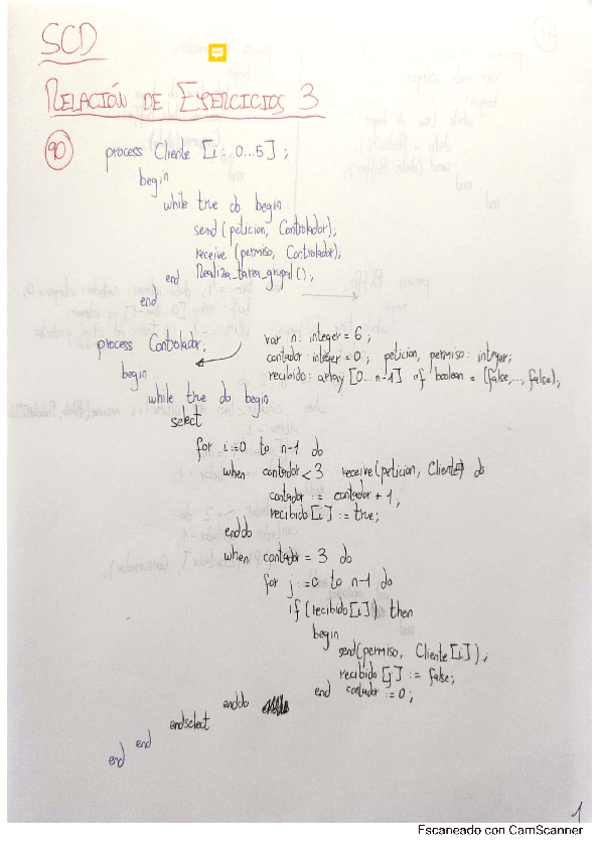 SCD
RELACIÓN DE EJERCICIOS 3
90 process Cliente [i: 0...5];
begin
while true do begin
send (peticion, Controlador);
receive (permiso, Controlador);
Realiza_tarea_grupal();
end
end
process Controlador;
var n: integer = 6;
contador: integer = 0; peticion, permiso: integer;
recibido: array [0...n-1] of boolean = (false,..., false);
begin
while true do begin
select
for i:=0 to n-1 do
when contador < 3 receive(peticion, Cliente[i]) do
contador := contador + 1;
recibido[i] := true;
enddo
when contador = 3 do
for j:=0 to n-1 do
if (recibido[i]) then
begin
send(permiso, Cliente[i]);
recibido[j] := false;
end contador := 0;
enddo
endselect
end
end
1
Escaneado con CamScanner